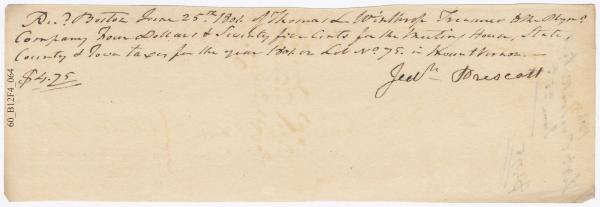 Rec.d Boston June 25th 1801. of Thomas L Winthrop Treasurer to the Plymo
Company Four Dollars & Seventy five Cents for the Meeting House, State,
County & Town taxes for the year 1801 on Lot No. 75. in Mount Vernon.
$4.75
Jedh. Prescott
60_B12F4_064